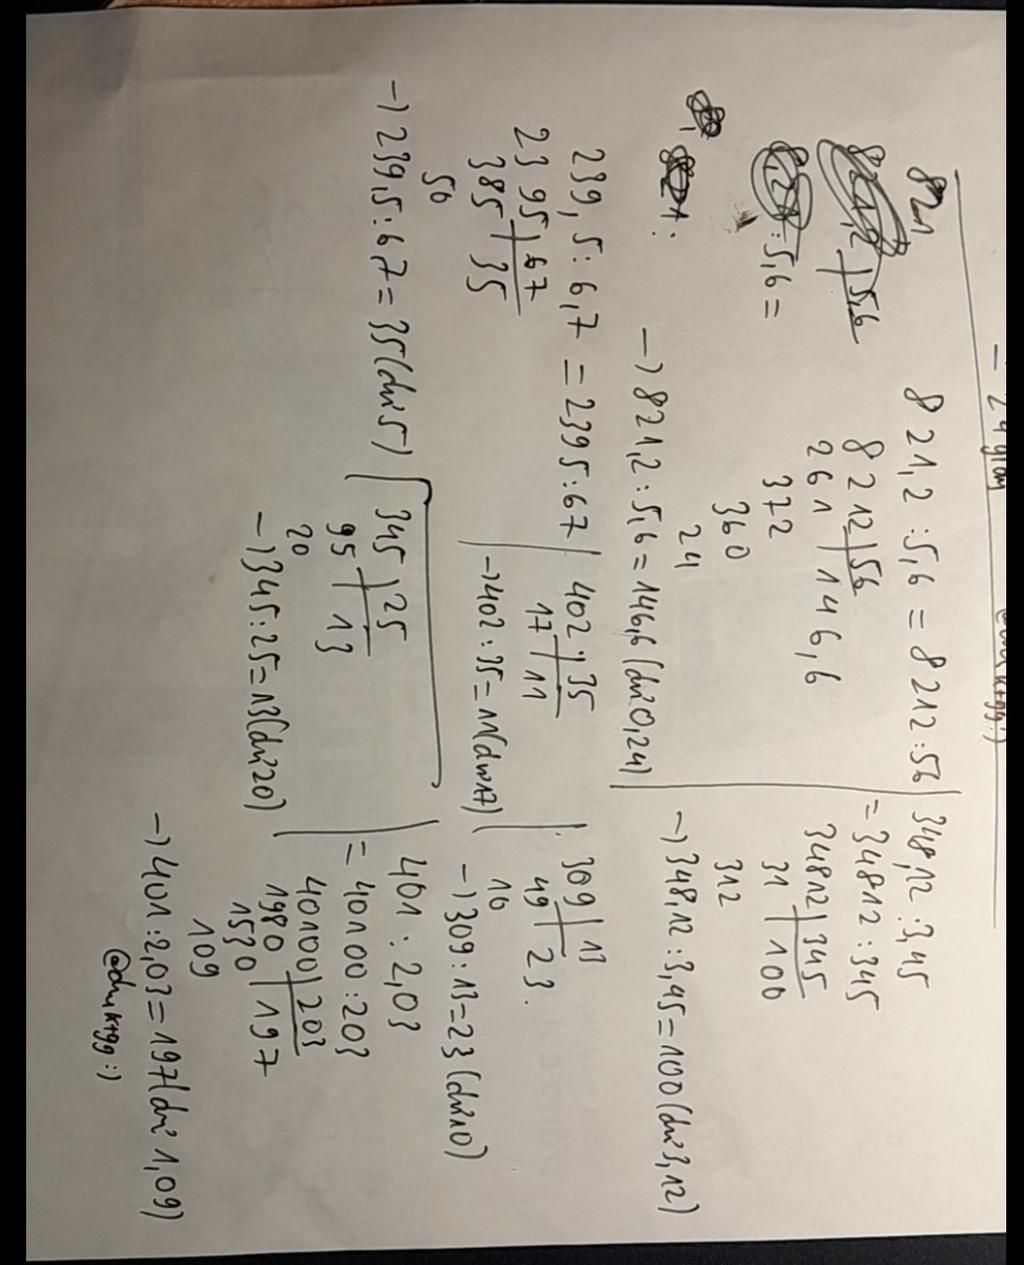 821
821,2 : 5,6 = 8212 : 56
8212 | 56
261 | 146,6
372
360
24
-) 821,2 : 5,6 = 146,6 (dư 0,24)
5,6
: 5,6 =
348,12 : 3,45
= 34812 : 345
34812 | 345
31 | 100
312
-) 348,12 : 3,45 = 100 (dư 3,12)
239,5 : 6,7 = 2395 : 67
2395 | 67
385 | 35
50
-) 239,5 : 6,7 = 35 (dư 5)
402 | 35
17 | 11
-) 402 : 35 = 11 (dư 17)
309 | 13
49 | 23.
10
-) 309 : 13 = 23 (dư 10)
345 | 25
95 | 13
20
-) 345 : 25 = 13 (dư 20)
401 : 2,03
= 40100 : 203
40100 | 203
1980 | 197
1530
109
-) 401 : 2,03 = 197 (dư 1,09)
@duk+gg :)